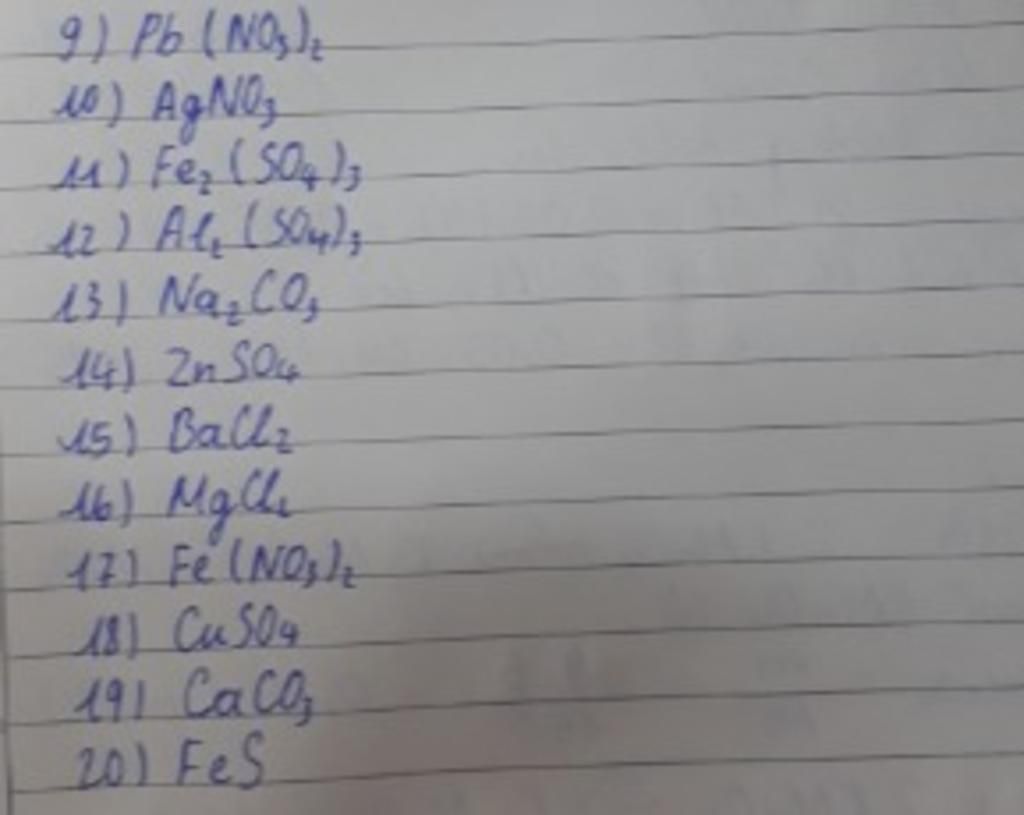 9) Pb(NO₃)₂
10) AgNO₃
11) Fe₂(SO₄)₃
12) Al₂(SO₄)₃
13) Na₂CO₃
14) ZnSO₄
15) BaCl₂
16) MgCl₂
17) Fe(NO₃)₂
18) CuSO₄
19) CaCO₃
20) FeS